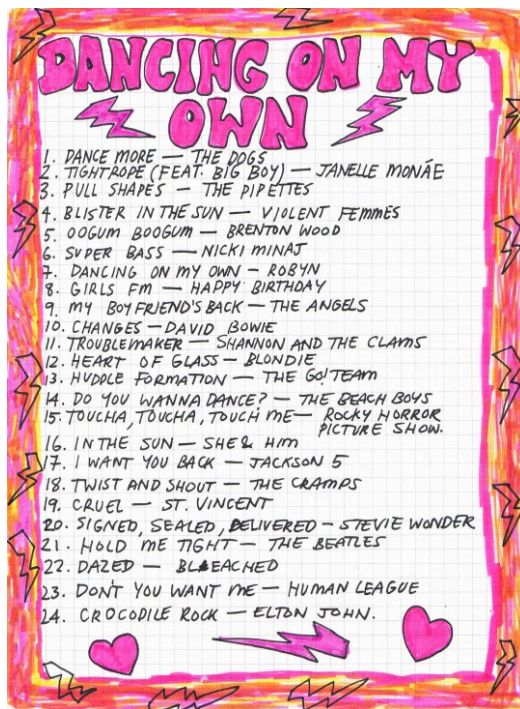 DANCING ON MY
OWN
1. DANCE MORE — THE DOGS
2. TIGHTROPE (FEAT. BIG BOY) — JANELLE MONÁE
3. PULL SHAPES — THE PIPETTES
4. BLISTER IN THE SUN — VIOLENT FEMMES
5. OOGUM BOOGUM — BRENTON WOOD
6. SUPER BASS — NICKI MINAJ
7. DANCING ON MY OWN — ROBYN
8. GIRLS FM — HAPPY BIRTHDAY
9. MY BOYFRIEND'S BACK — THE ANGELS
10. CHANGES — DAVID BOWIE
11. TROUBLEMAKER — SHANNON AND THE CLAMS
12. HEART OF GLASS — BLONDIE
13. HUDDLE FORMATION — THE GO! TEAM
14. DO YOU WANNA DANCE? — THE BEACH BOYS
15. TOUCHA, TOUCHA, TOUCH ME — ROCKY HORROR
PICTURE SHOW.
16. IN THE SUN — SHE & HIM
17. I WANT YOU BACK — JACKSON 5
18. TWIST AND SHOUT — THE CRAMPS
19. CRUEL — ST. VINCENT
20. SIGNED, SEALED, DELIVERED — STEVIE WONDER
21. HOLD ME TIGHT — THE BEATLES
22. DAZED — BLEACHED
23. DON'T YOU WANT ME — HUMAN LEAGUE
24. CROCODILE ROCK — ELTON JOHN.